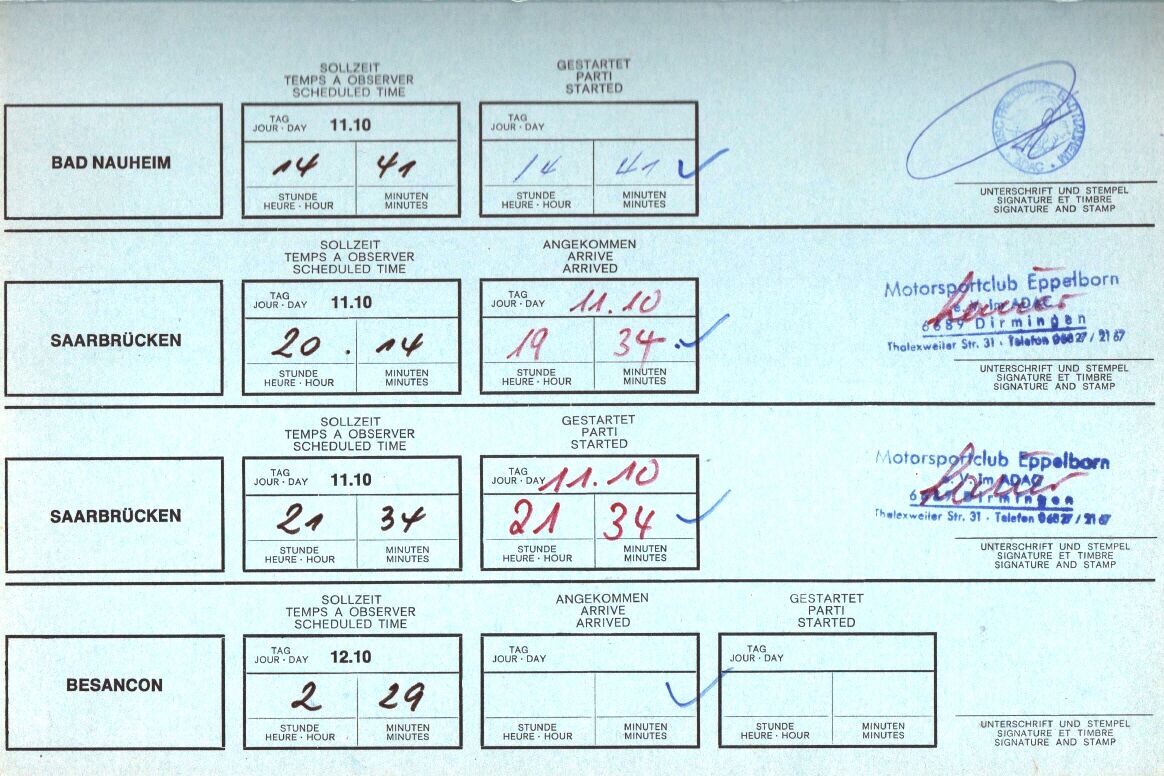 SOLLZEIT
TEMPS A OBSERVER
SCHEDULED TIME
GESTARTET
PARTI
STARTED
BAD NAUHEIM
TAG
JOUR · DAY 11.10
14 41
STUNDE MINUTEN
HEURE · HOUR MINUTES
TAG
JOUR · DAY
14 41
STUNDE MINUTEN
HEURE · HOUR MINUTES
ADAC
UNTERSCHRIFT UND STEMPEL
SIGNATURE ET TIMBRE
SIGNATURE AND STAMP
SOLLZEIT
TEMPS A OBSERVER
SCHEDULED TIME
ANGEKOMMEN
ARRIVE
ARRIVED
SAARBRÜCKEN
TAG
JOUR · DAY 11.10
20 . 14
STUNDE MINUTEN
HEURE · HOUR MINUTES
TAG
JOUR · DAY 11.10
19 34
STUNDE MINUTEN
HEURE · HOUR MINUTES
Motorsportclub Eppelborn
e. V. im ADAC
6689 Dirmingen
Thalexweiler Str. 31 · Telefon 06827 / 2167
UNTERSCHRIFT UND STEMPEL
SIGNATURE ET TIMBRE
SIGNATURE AND STAMP
SOLLZEIT
TEMPS A OBSERVER
SCHEDULED TIME
GESTARTET
PARTI
STARTED
SAARBRÜCKEN
TAG
JOUR · DAY 11.10
21 34
STUNDE MINUTEN
HEURE · HOUR MINUTES
TAG
JOUR · DAY 11.10
21 34
STUNDE MINUTEN
HEURE · HOUR MINUTES
Motorsportclub Eppelborn
e. V. im ADAC
6689 Dirmingen
Thalexweiler Str. 31 · Telefon 06827 / 2167
UNTERSCHRIFT UND STEMPEL
SIGNATURE ET TIMBRE
SIGNATURE AND STAMP
SOLLZEIT
TEMPS A OBSERVER
SCHEDULED TIME
ANGEKOMMEN
ARRIVE
ARRIVED
GESTARTET
PARTI
STARTED
BESANCON
TAG
JOUR · DAY 12.10
2 29
STUNDE MINUTEN
HEURE · HOUR MINUTES
TAG
JOUR · DAY
STUNDE MINUTEN
HEURE · HOUR MINUTES
TAG
JOUR · DAY
STUNDE MINUTEN
HEURE · HOUR MINUTES
UNTERSCHRIFT UND STEMPEL
SIGNATURE ET TIMBRE
SIGNATURE AND STAMP